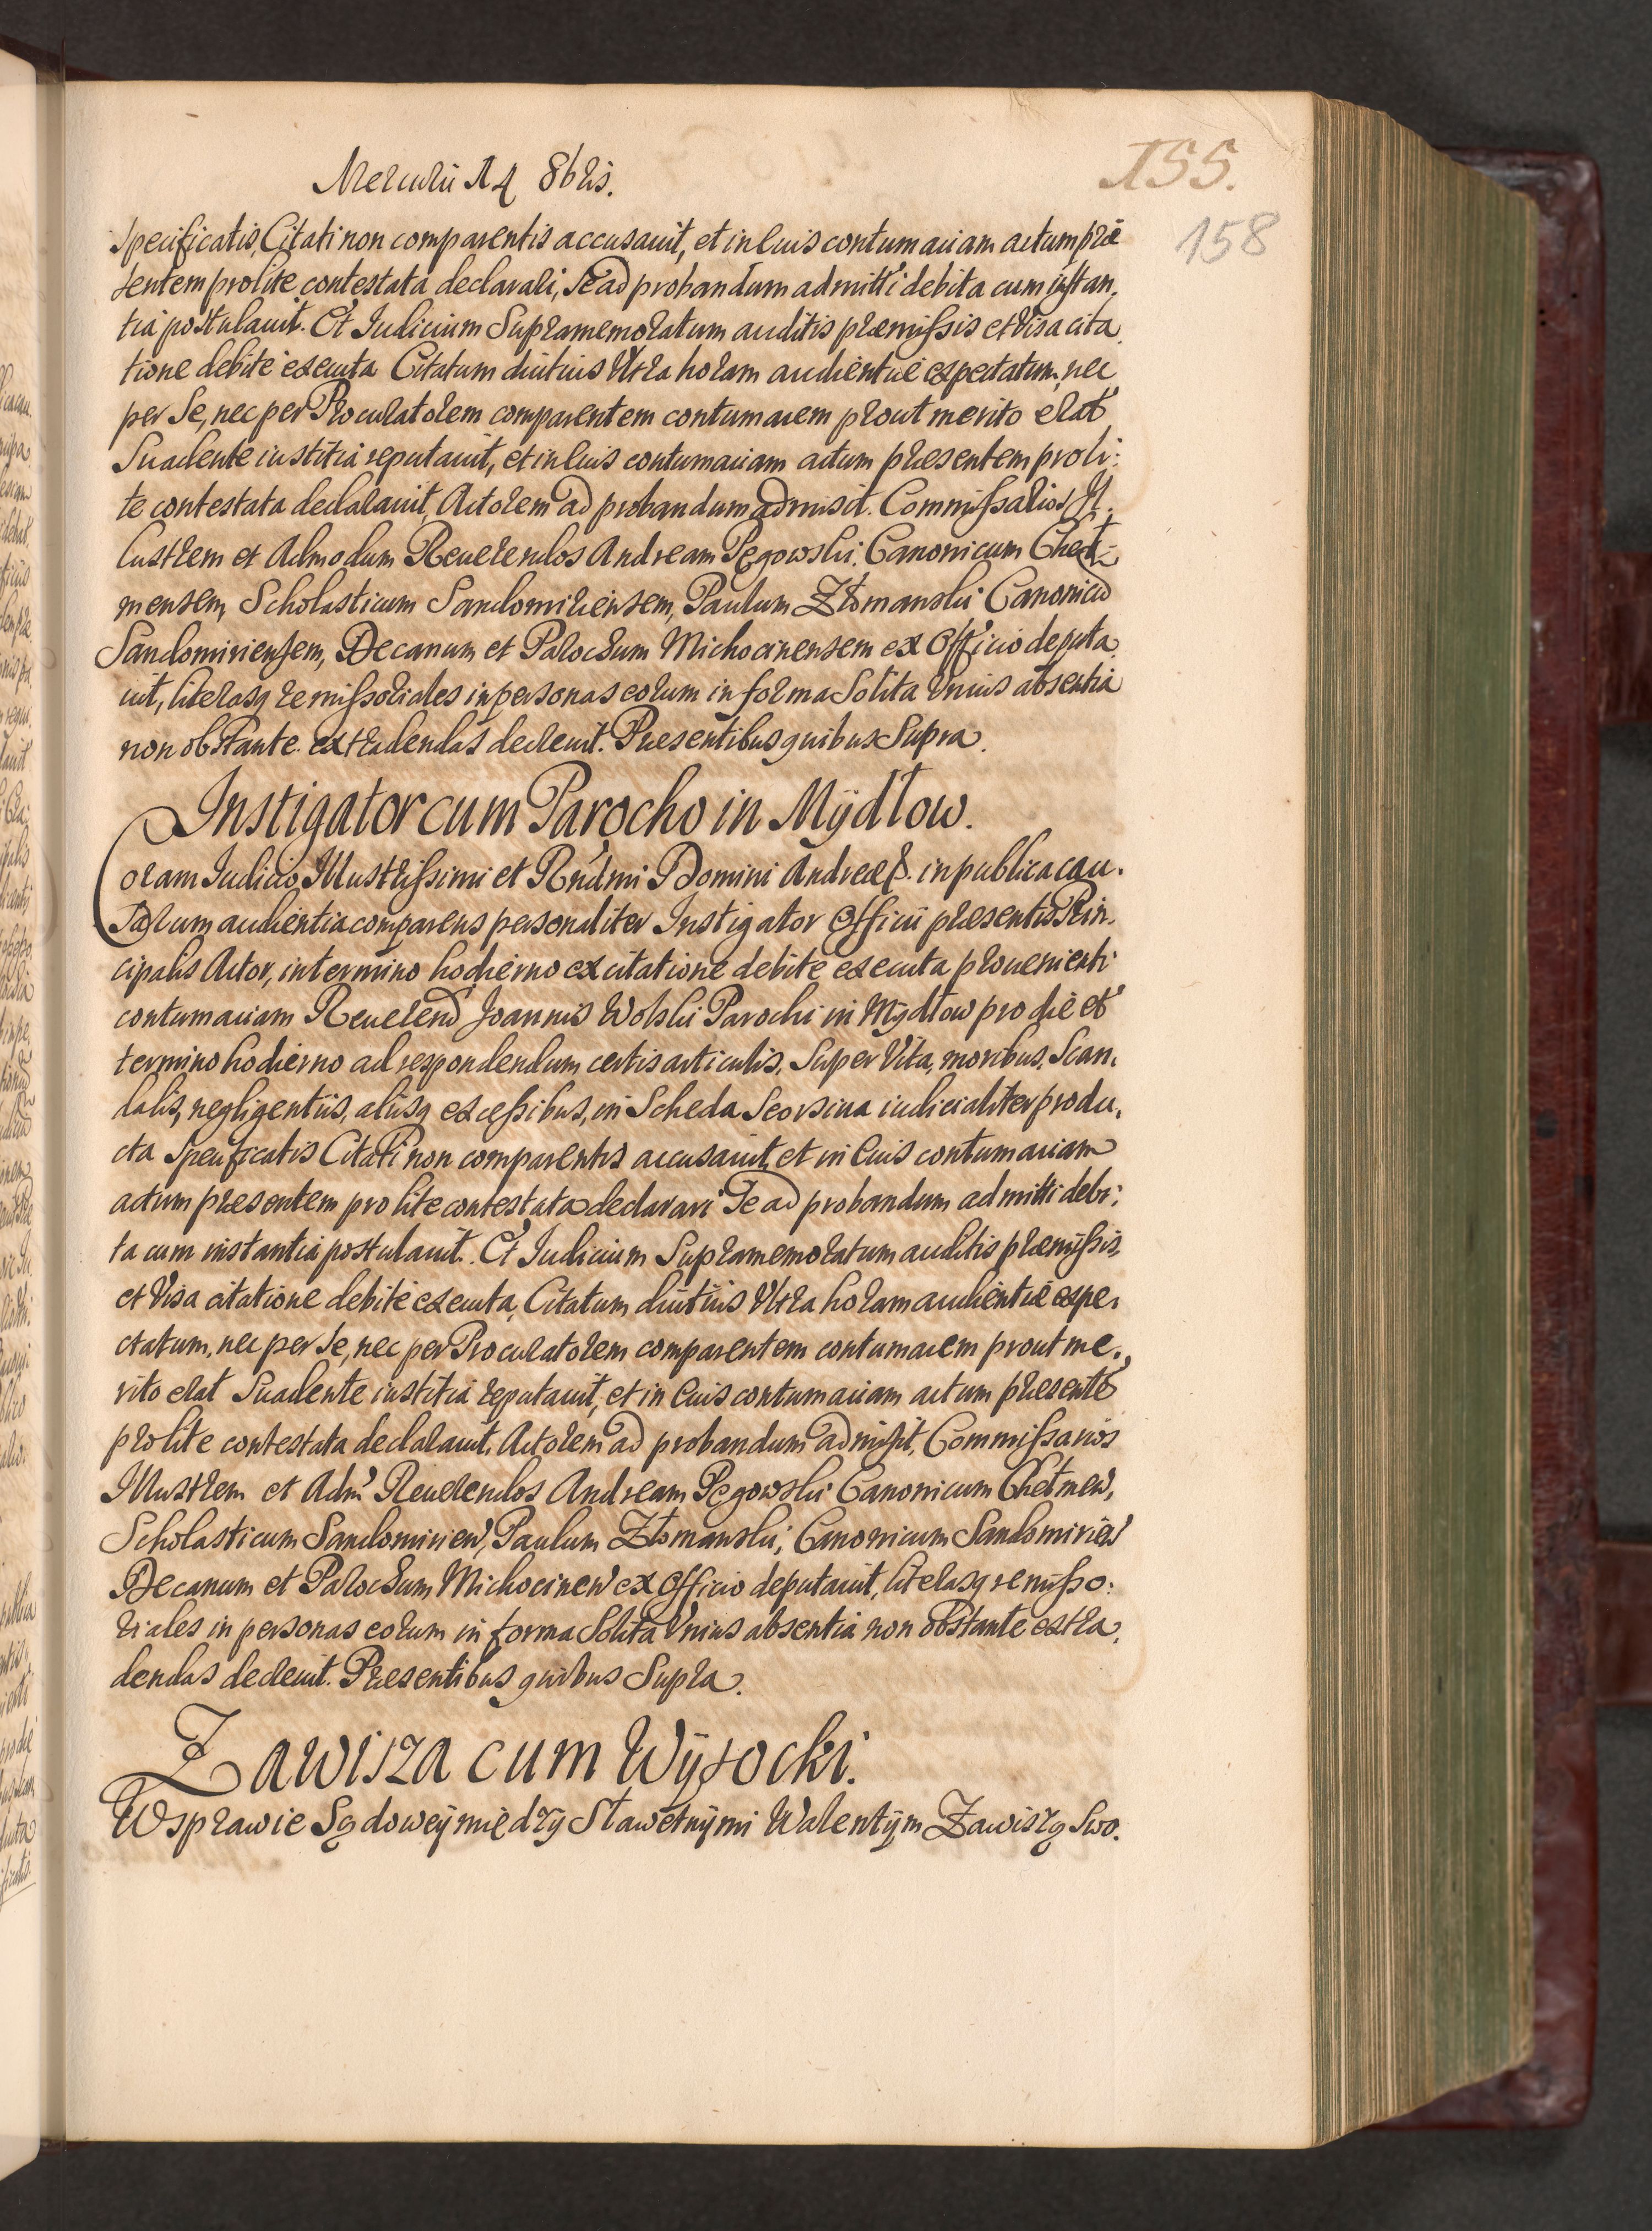 Mercurii 14 8bris.
155.
158
specificatis, Citati non comparentis accusauit, et in Cuius contumaciam actum præ
sentem pro lite contestata declarari, Se ad probandum admitti debita cum instan,
tia postulauit. Et Iudicium Supramemoratum auditis præmissis et Visa cita,
tione debite executa Citatum diutius Vltra horam audientiæ expectatum, nec
per Se, nec per Procuratorem comparentem contumacem prout merito erat
Suadente iustitia reputauit, et in Cuius contumaciam actum præsentem pro li:
te contestata declarauit, Actorem ad probandum admisit. Commissarios Il,
lustrem et Admodum Reuerendos Andream Pęgowski Canonicum Cheł:
mensem, Scholasticum Sandomiriensem, Paulum Złomanski Canonicū
Sandomiriensem, Decanum et Parochum Michocinensem ex Officio deputa,
uit, literasq remissoriales in personas eorum in forma Solita Vnius absentia
non obstante extradendas decreuit. Præsentibus quibus Supra.
Instigator cum Parocho in Mÿdłow.
Coram Iudicio Illustrissimi et Rndmi Domini Andreæ &. in publica cau,
sarum audientia comparens personaliter Instigator Officii præsentis Prin,
cipalis Actor, in termino hodierno ex citatione debite executa prouenienti
contumaciam Reuerend Joannis Wolski Parochi in Mÿdłow pro die et
termino hodierno ad respondendum certis articulis, Super Vita, moribus, Scan,
dalis, negligentiis, aliisq excessibus, in Scheda Seorsiua iudicialiter produ,
cta Specificatis Citati non comparentis accusauit, et in Cuius contumaciam
actum præsentem pro lite contestata declarari Se ad probandum admitti debi:
ta cum instantia postulauit. Et Iudicium Supramemoratum auditis præmissis,
et Visa citatione debite executa, Citatum diutius Vltra horam audientiæ expe,
ctatum, nec per Se, nec per Procuratorem comparentem contumacem prout me,
rito erat Suadente iustitia reputauit, et in Cuius contumaciam actum præsentē
pro lite contestata declarauit, Actorem ad probandum admisit, Commissarios
Illustrem et Adm Reuerendos Andream Pęgowski Canonicum Chełmen,
Scholasticum Sandomirien, Paulum Złomanski, Canonicum Sandomirien
Decanum et Parochum Michocinen ex Officio deputauit, literasq remisso:
riales in personas eorum in forma Solita Vnius absentia non obstante extra,
dendas decreuit. Præsentibus quibus Supra.
Zawisza cum Wÿsocki.
W sprawie Sądoweÿ międzÿ Sławetnÿmi Walentÿm Zawiszą Swo,